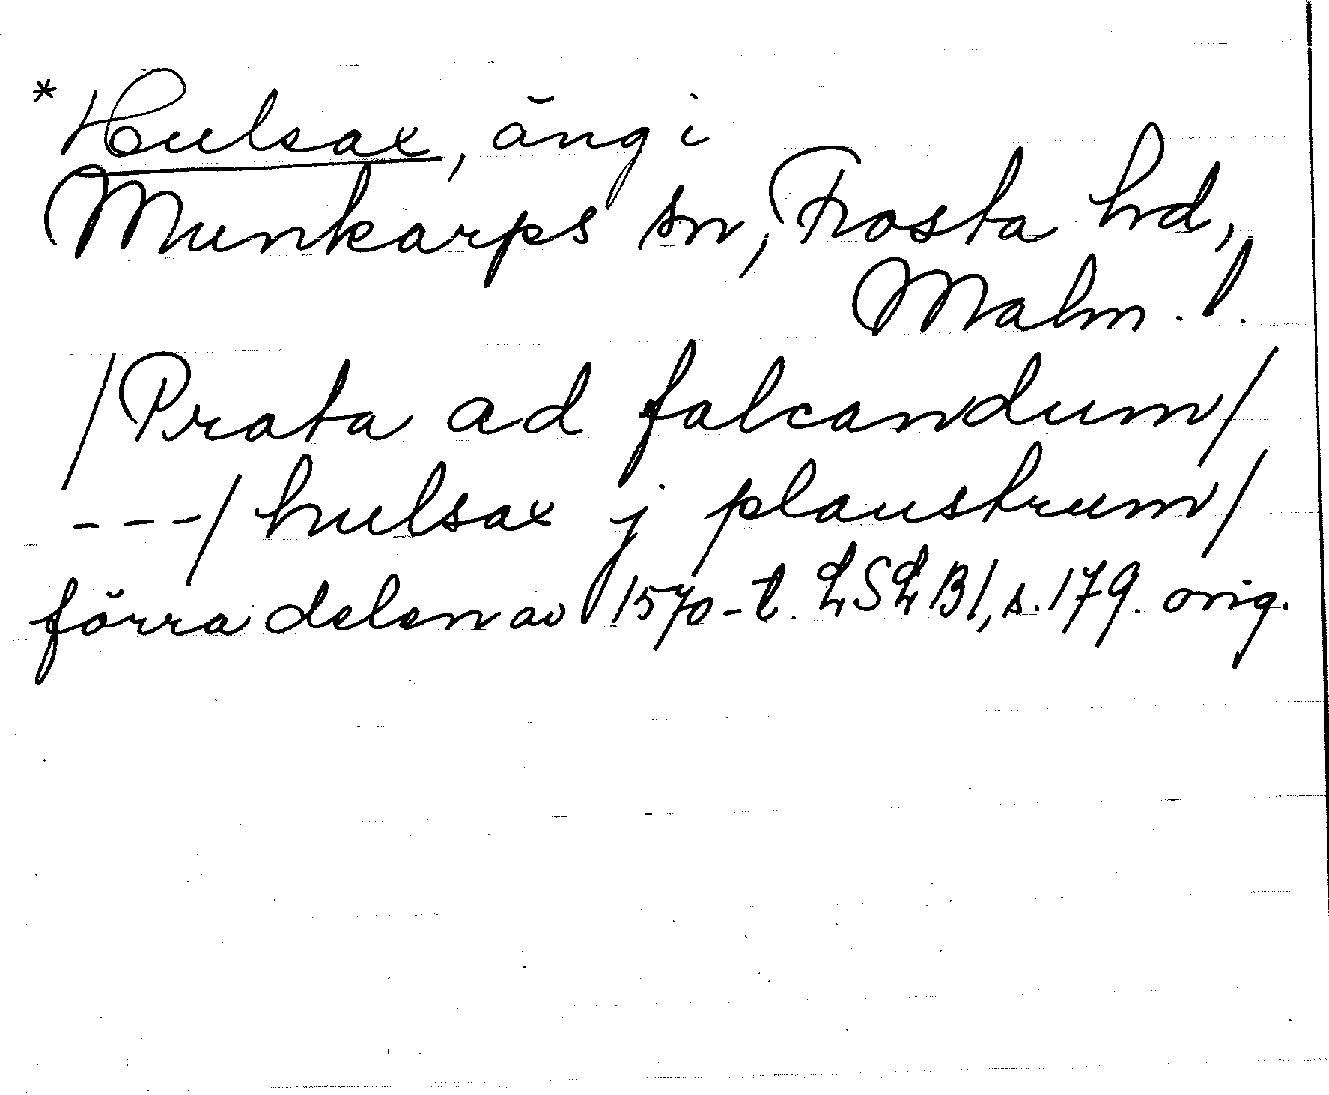 * Hulsax, äng i
Munkarps sn, Frosta hd,
Malm. l.
/Prata ad falcandum/
---/hulsax j plaustrum/
förra delen av 1570-t. LSLB1, s. 179. orig.